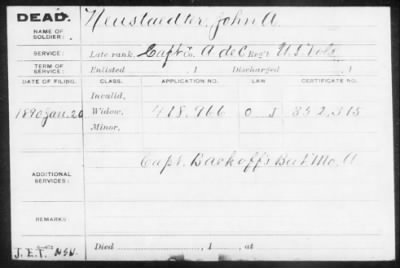 DEAD. Neustaedter, John A
NAME OF SOLDIER:
SERVICE: Late rank, Capt Co. A de C Reg't U.S. Vols
TERM OF SERVICE: Enlisted , 1 Discharged , 1
DATE OF FILING. CLASS. APPLICATION NO. LAW CERTIFICATE NO.
Invalid,
1890 Jan. 20 Widow, 418.966 O J 352.315
Minor,
ADDITIONAL SERVICES: Capt. Backoff's Bat Mo. A
REMARKS:
J.E.T. Died , 1 , at